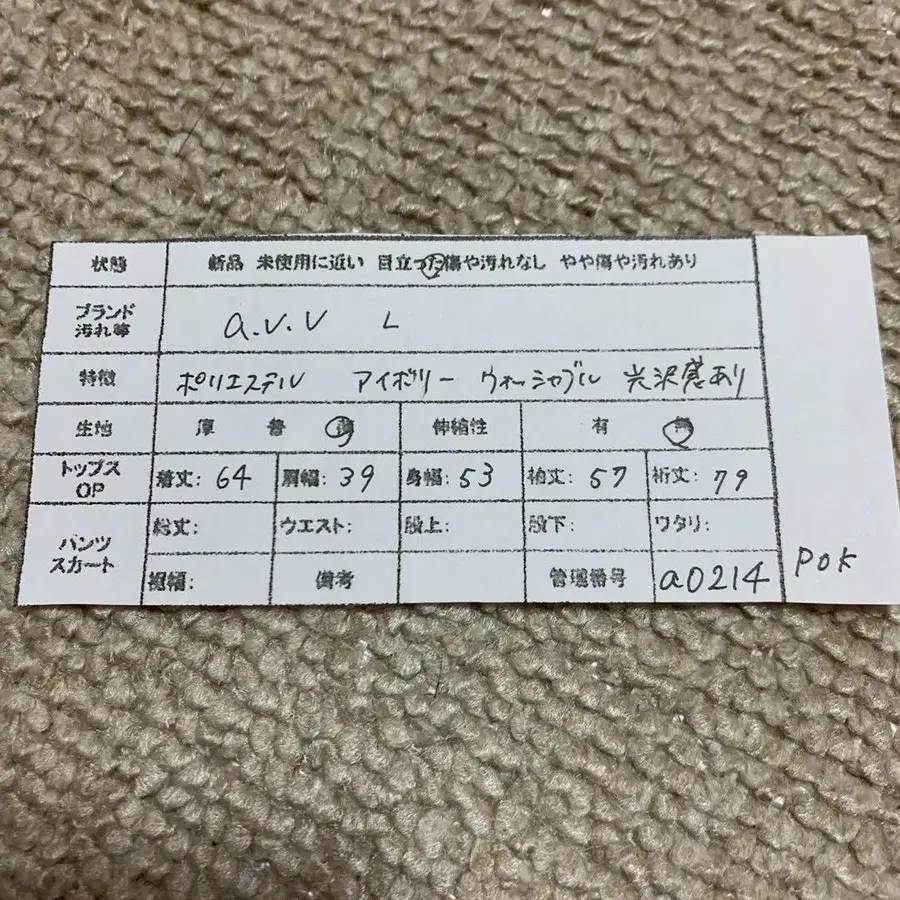 状態 新品 未使用に近い 目立った傷や汚れなし やや傷や汚れあり
ブランド
汚れ等
a.v.v L
特徴 ポリエステル アイボリー ウォーシャブル 光沢感あり
生地 厚 普 薄 伸縮性 有 無
トップス
OP
着丈: 64 肩幅: 39 身幅: 53 袖丈: 57 裄丈: 79
パンツ
スカート
総丈: ウエスト: 股上: 股下: ワタリ:
裾幅: 備考 管理番号 a0214
POK